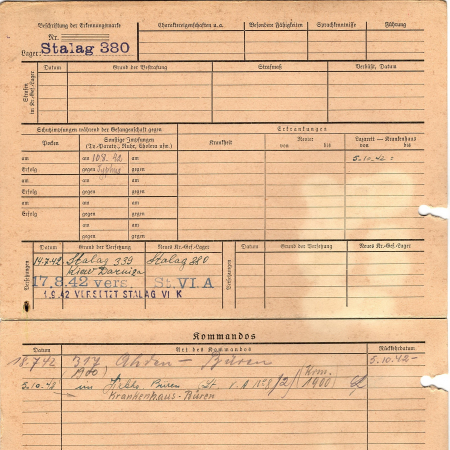 Beschriftung der Erkennungsmarke
Nr.
Lager: Stalag 380
Charaktereigenschaften u. a.
Besondere Fähigkeiten
Sprachkenntnisse
Führung
Strafen im Kr.-Gef.-Lager
Datum
Grund der Bestrafung
Strafmaß
Verbüßt, Datum
Schutzimpfungen während der Gefangenschaft gegen
Pocken
Sonstige Impfungen
(Ty.-Paraty., Ruhr, Cholera usw.)
am
am 10.8.42
Erfolg
gegen Typhus
am
am
Erfolg
gegen
am
am
Erfolg
gegen
am
gegen
am
gegen
Erkrankungen
Krankheit
Revier
von bis
Lazarett — Krankenhaus
von bis
5.10.42
Versetzungen
Datum
Grund der Versetzung
Neues Kr.-Gef.-Lager
14.7.42 Stalag 339 Stalag 380
Kiew Darniza
17.8.42 vers. St. VI A
1.9.42 VERSETZT STALAG VI K
Versetzungen
Datum
Grund der Versetzung
Neues Kr.-Gef.-Lager
Kommandos
Datum
Art des Kommandos
Rückkehrdatum
18.7.42 317 Ahden - Büren 5.10.42
(1900)
5.10.42 ins Büren
1900
Krankenhaus - Büren